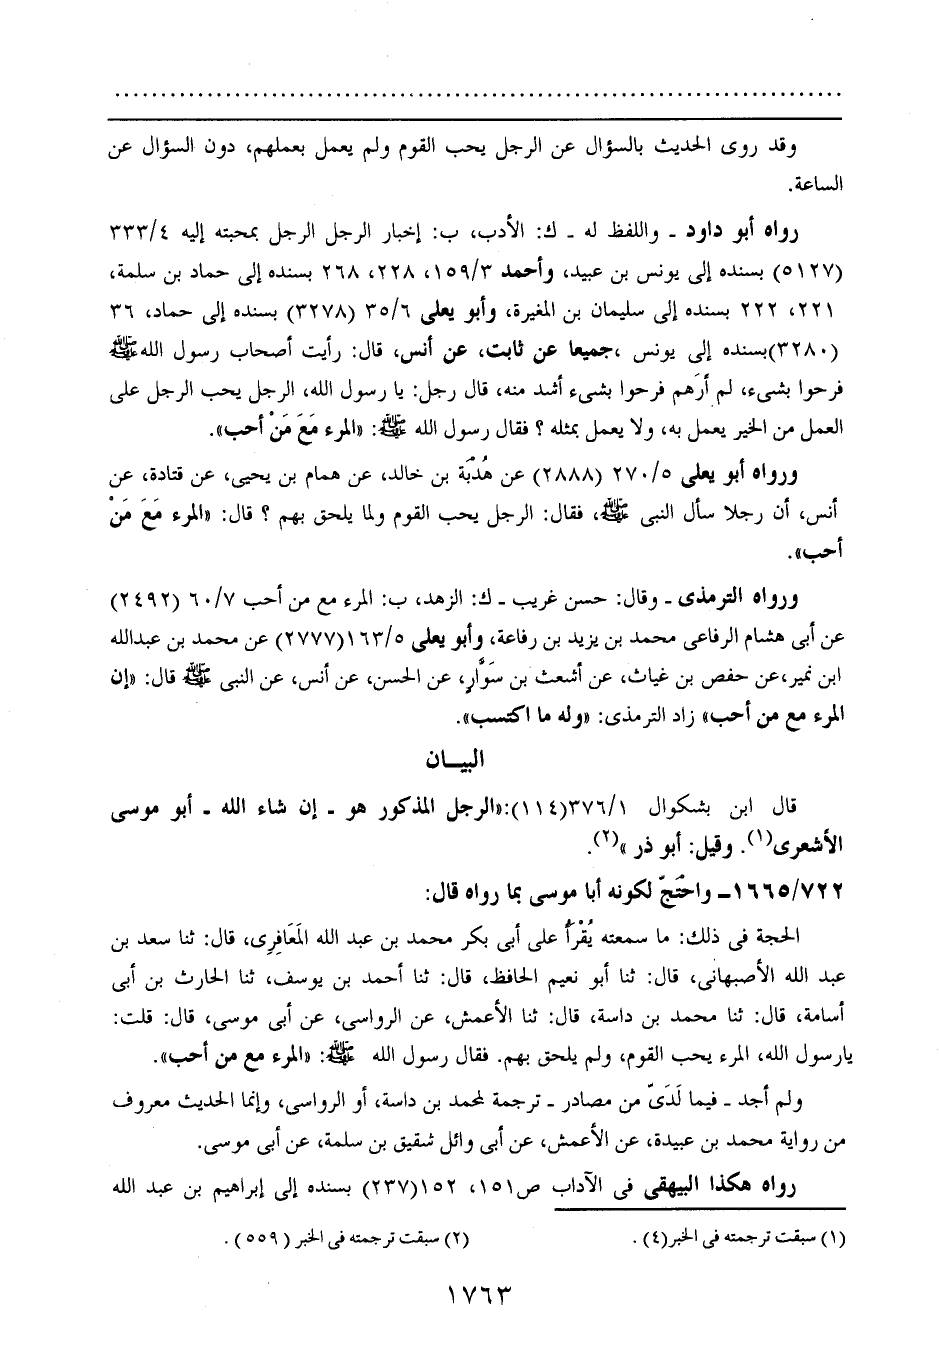 وقد روى الحديث بالسؤال عن الرجل يحب القوم ولم يعمل بعملهم، دون السؤال عن
الساعة.
رواه أبو داود ـ واللفظ له ـ ك: الأدب، ب: إخبار الرجل الرجل بمحبته إليه ٣٣٣/٤
(٥١٢٧) بسنده إلى يونس بن عبيد، وأحمد ١٥٩/٣، ٢٢٨، ٢٦٨ بسنده إلى حماد بن سلمة،
٢٢١، ٢٢٢ بسنده إلى سليمان بن المغيرة، وأبو يعلى ٣٥/٦ (٣٢٧٨) بسنده إلى حماد، ٣٦
(٣٢٨٠)بسنده إلى يونس ،جميعا عن ثابت، عن أنس، قال: رأيت أصحاب رسول الله ﷺ
فرحوا بشىء، لم أرَهم فرحوا بشىء أشد منه، قال رجل: يا رسول الله، الرجل يحب الرجل على
العمل من الخير يعمل به، ولا يعمل بمثله ؟ فقال رسول الله ﷺ: «المرء مَعَ مَنْ أحب».
ورواه أبو يعلى ٢٧٠/٥ (٢٨٨٨) عن هُدْبَة بن خالد، عن همام بن يحيى، عن قتادة، عن
أنس، أن رجلا سأل النبى ﷺ، فقال: الرجل يحب القوم ولما يلحق بهم ؟ قال: «المرء مَعَ مَنْ
أحب».
ورواه الترمذى ـ وقال: حسن غريب ـ ك: الزهد، ب: المرء مع من أحب ٦٠/٧ (٢٤٩٢)
عن أبى هشام الرفاعى محمد بن يزيد بن رفاعة، وأبو يعلى ١٦٣/٥(٢٧٧٧) عن محمد بن عبدالله
ابن نمير،عن حفص بن غياث، عن أشعث بن سَوَّارٍ، عن الحسن، عن أنس، عن النبى ﷺ قال: «إن
المرء مع من أحب» زاد الترمذى: «وله ما اكتسب».
البيـــان
قال ابن بشكوال ٣٧٦/١(١١٤):«الرجل المذكور هو ـ إن شاء الله ـ أبو موسى
الأشعرى(١). وقيل: أبو ذر »(٢).
١٦٦٥/٧٢٢ـ واحْتَجّ لكونه أبا موسى بما رواه قال:
الحجة فى ذلك: ما سمعته يُقْرَأُ على أبى بكر محمد بن عبد الله المَعَافِرِى، قال: ثنا سعد بن
عبد الله الأصبهانى، قال: ثنا أبو نعيم الحافظ، قال: ثنا أحمد بن يوسف، ثنا الحارث بن أبى
أسامة، قال: ثنا محمد بن داسة، قال: ثنا الأعمش، عن الرواسى، عن أبى موسى، قال: قلت:
يارسول الله، المرء يحب القوم، ولم يلحق بهم. فقال رسول الله ﷺ: «المرء مع من أحب».
ولم أجد ـ فيما لَدَىّ من مصادر ـ ترجمة لمحمد بن داسة، أو الرواسى، وإنما الحديث معروف
من رواية محمد بن عبيدة، عن الأعمش، عن أبى وائل شقيق بن سلمة، عن أبى موسى.
رواه هكذا البيهقى فى الآداب ص١٥١، ١٥٢(٢٣٧) بسنده إلى إبراهيم بن عبد الله
(١) سبقت ترجمته فى الخبر(٤) .
(٢) سبقت ترجمته فى الخبر ( ٥٥٩) .
١٧٦٣